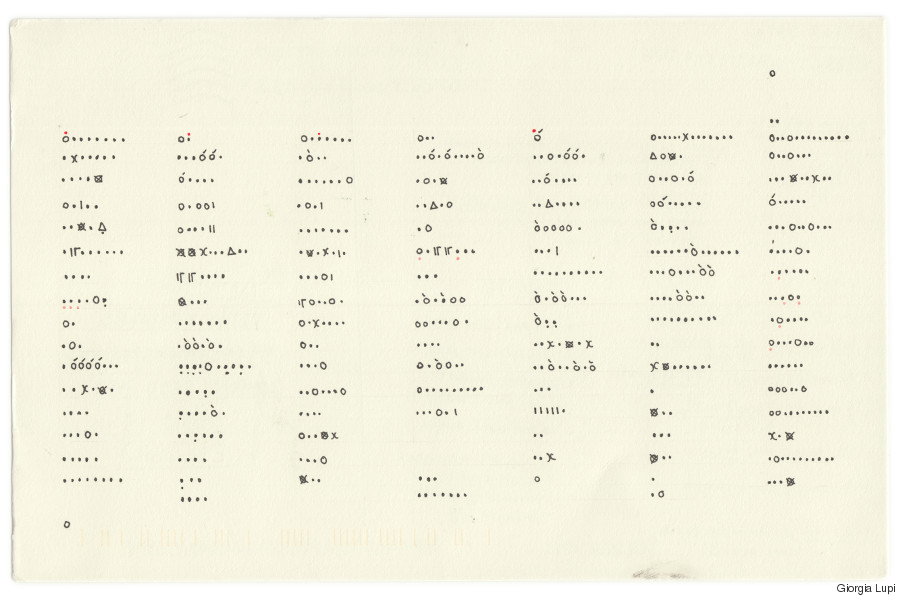 Giorgia Lupi